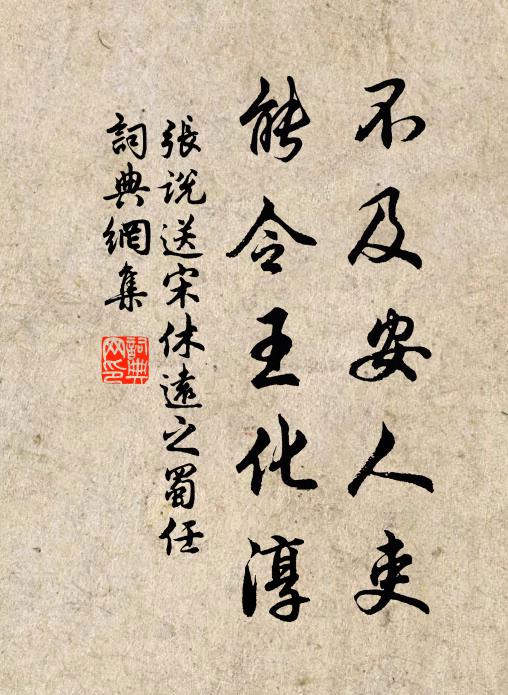 不及安人吏
能令王化淳
張說送宋休遠之蜀任
詞典網集
詞典
网印